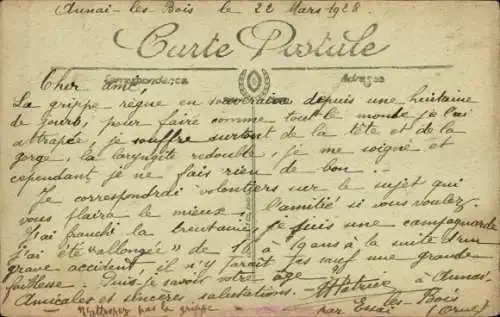 Aunai-les-Bois le 22 Mars 1928.
Carte Postale
Correspondance
Adresse
Cher ami
La grippe règne en souveraine depuis une huitaine
de jours, pour faire comme tout le monde je l'ai
attrapée, je souffre surtout de la tête et de la
gorge, la laryngite redouble, je me soigne et
cependant je ne fais rien de bon...
Je correspondrai volontiers sur le sujet qui
vous plaira le mieux: l'amitié si vous voulez.
J'ai franchi la trentaine, je suis une campagnarde
J'ai été "allongée" de 16 à 19 ans à la suite d'un
grave accident, il n'y paraît pas sauf une grande
faiblesse. Puis-je savoir votre âge?
Amicales et sincères salutations. à Aunai-
les-Bois
N'attrapez pas la grippe par Essai (Orne)